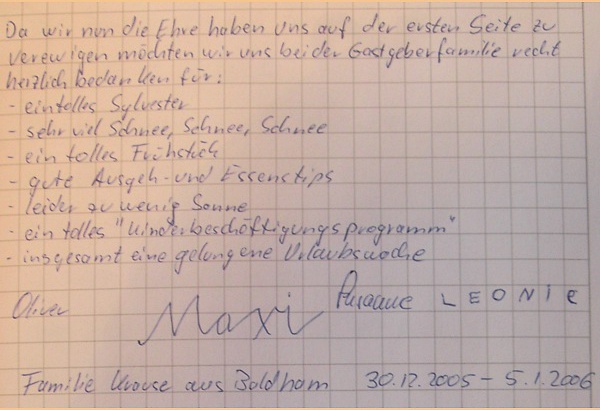 Da wir nun die Ehre haben uns auf der ersten Seite zu
verewigen möchten wir uns bei der Gastgeberfamilie recht
herzlich bedanken für:
- ein tolles Sylvester
- sehr viel Schnee, Schnee, Schnee
- ein tolles Frühstück
- gute Ausgeh- und Essenstips
- leider zu wenig Sonne
- ein tolles "Kinderbeschäftigungsprogramm"
- insgesamt eine gelungene Urlaubswoche
Oliver Maxi LEONIE
Familie Krause aus Baldham 30.12.2005 - 5.1.2006